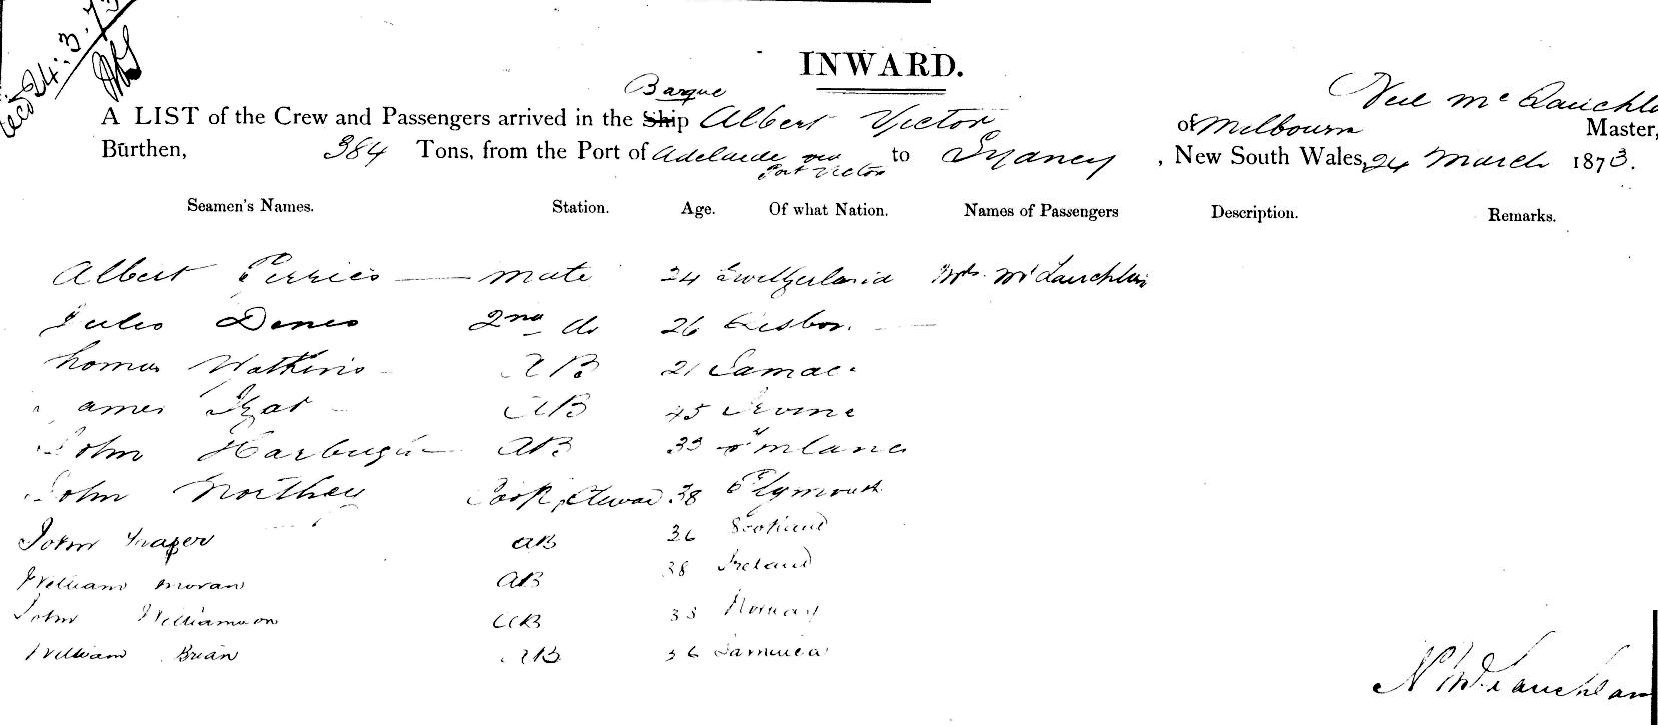 24.3.73
INWARD.
Barque
A LIST of the Crew and Passengers arrived in the Ship Albert Victor of Melbourn Neil McLauchla Master,
Burthen, 384 Tons, from the Port of Adelaide via Port Victor to Sydney, New South Wales, 24 March 1873.
Seamen's Names. Station. Age. Of what Nation. Names of Passengers Description. Remarks.
Albert mate 24 Switzerland Mrs. McLauchlin
Jules 2nd do 26 Lisbon.
homas Watkins AB 21
ames AB 45 Irvine
John AB 33 Finland
John Northey Cook, Steward 38 Plymouth
John Frazer AB 36 Scotland
William Moran AB 38 Ireland
John Williamson AB 33 Norway
William Brian AB 36 Jamaica
N McLauchlan